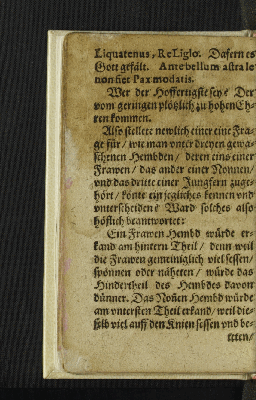 Liquatenus, ReLigIo. Dafern es
Gott gefält. Ante bellum astra le
non fiet Pax modatis.
Wer der Hoffertigste sey? Der
vom geringen plötzlich zu hohen Eh-
ren kommen.
Also stellete newlich einer eine Fra-
ge für / wie man vnter dreyen gewa-
schenen Hembden / deren eins einer
Frawen / das ander einer Nonnen /
vnd das dritte einer Jungfern zuge-
hört / könte ein jegliches kennen vnd
vnterscheiden? Ward solches also
höflich beantwortet:
Ein Frawen Hembd würde er-
kand am hintern Theil / denn weil
die Frawen gemeiniglich viel sessen /
spönnen oder näheten / würde das
Hindertheil des Hembdes davon
dünner. Das Noñen Hembd würde
am vntersten Theil erkand / weil die-
selb viel auff den Knien sessen vnd be-
teten /